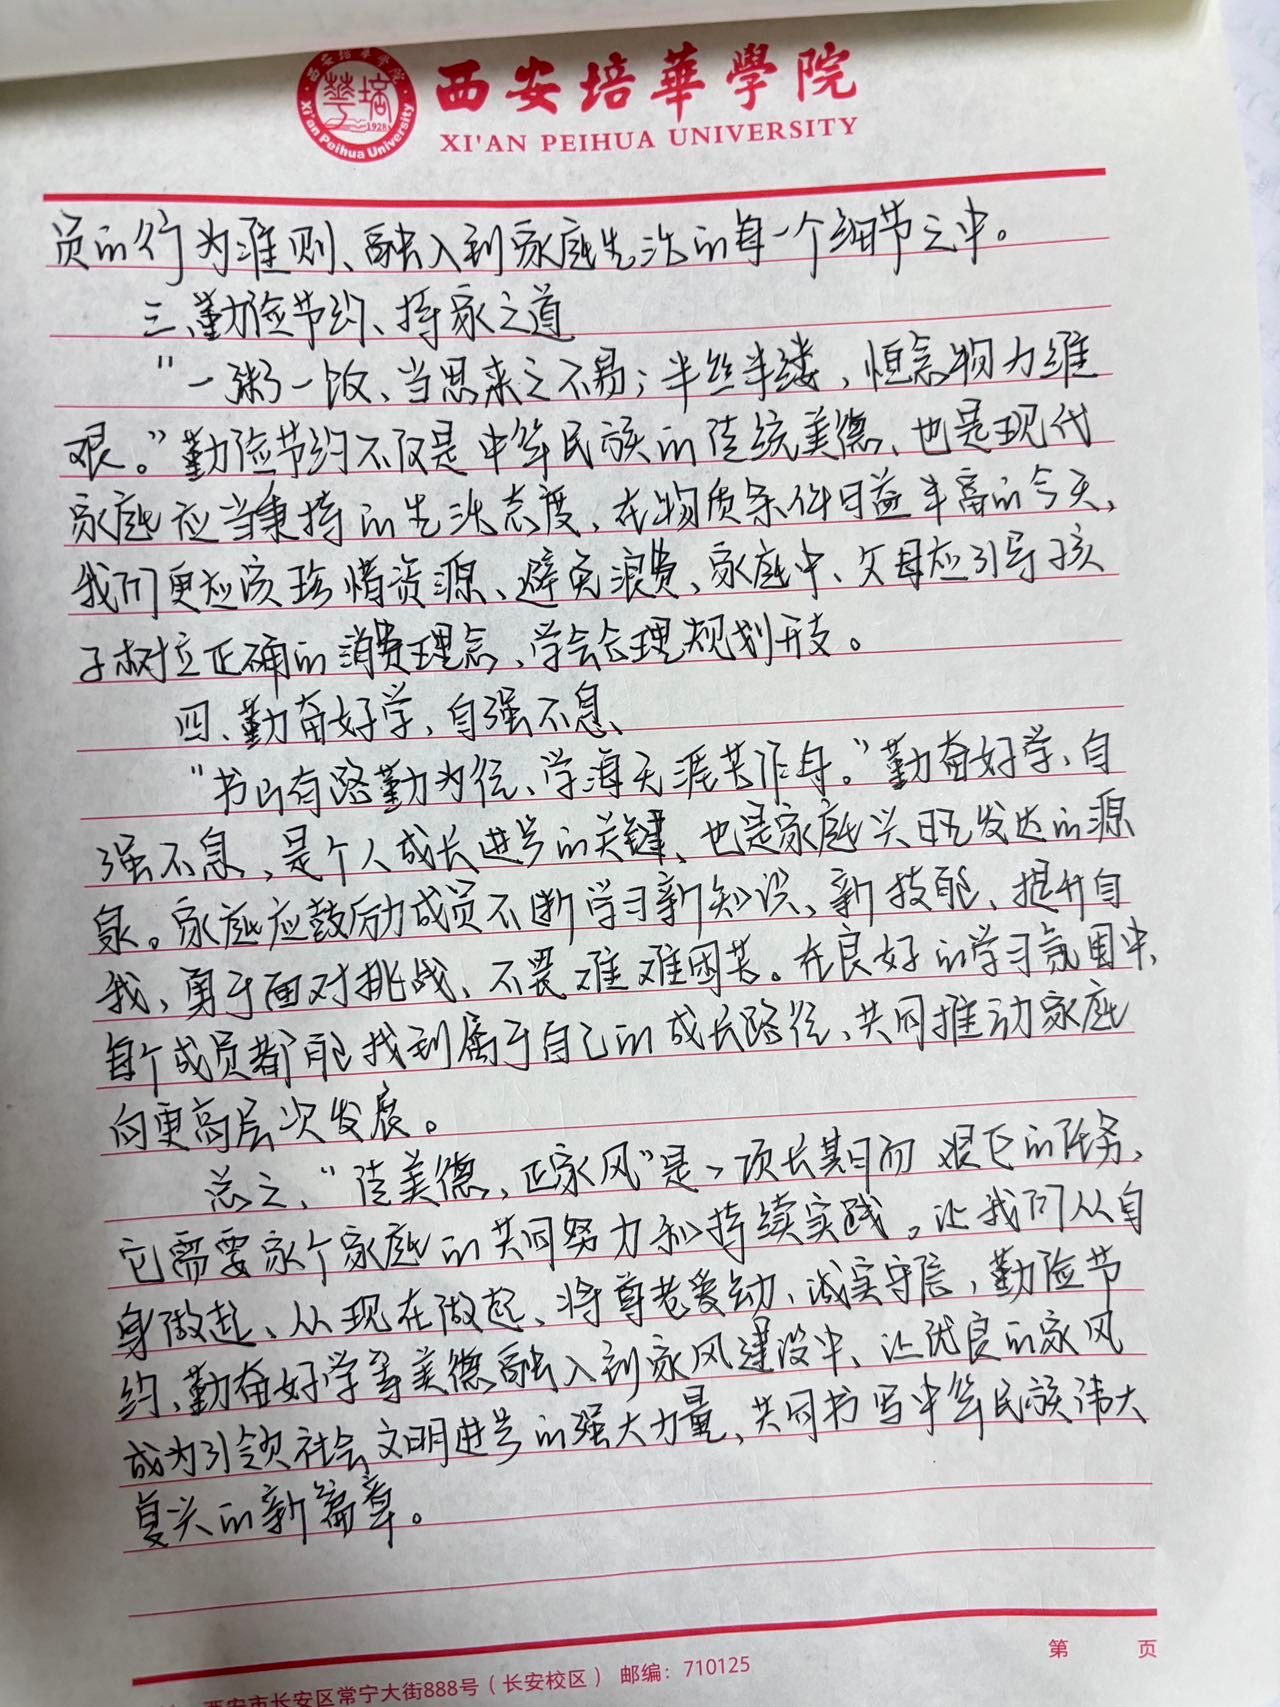 西安培華學院
XI'AN PEIHUA UNIVERSITY
西安培华学院
Xi'an Peihua University
1928
员的行为准则、融入到家庭生活的每一个细节之中。
三、勤俭节约、持家之道
“一粥一饭、当思来之不易；半丝半缕，恒念物力维
艰。”勤俭节约不仅是中华民族的传统美德、也是现代
家庭应当秉持的生活态度、在物质条件日益丰富的今天，
我们更应该珍惜资源、避免浪费、家庭中、父母应引导孩
子树立正确的消费理念、学会合理规划开支。
四、勤奋好学，自强不息、
“书山有路勤为径、学海无涯苦作舟。”勤奋好学、自
强不息，是个人成长进步的关键、也是家庭兴旺发达的源
泉。家庭应鼓励成员不断学习新知识、新技能、提升自
我，勇于面对挑战、不畏难难困苦。在良好的学习氛围中、
每个成员都能找到属于自己的成长路径、共同推动家庭
向更高层次发展。
总之、“传美德，正家风”是一项长期而艰巨的任务、
它需要家个家庭的共同努力和持续实践。让我们从自
身做起、从现在做起、将尊老爱幼、诚实守信，勤俭节
约、勤奋好学等美德融入到家风建设中、让优良的家风
成为引领社会文明进步的强大力量、共同书写中华民族伟大
复兴的新篇章。
第 页
西安市长安区常宁大街888号（长安校区） 邮编：710125